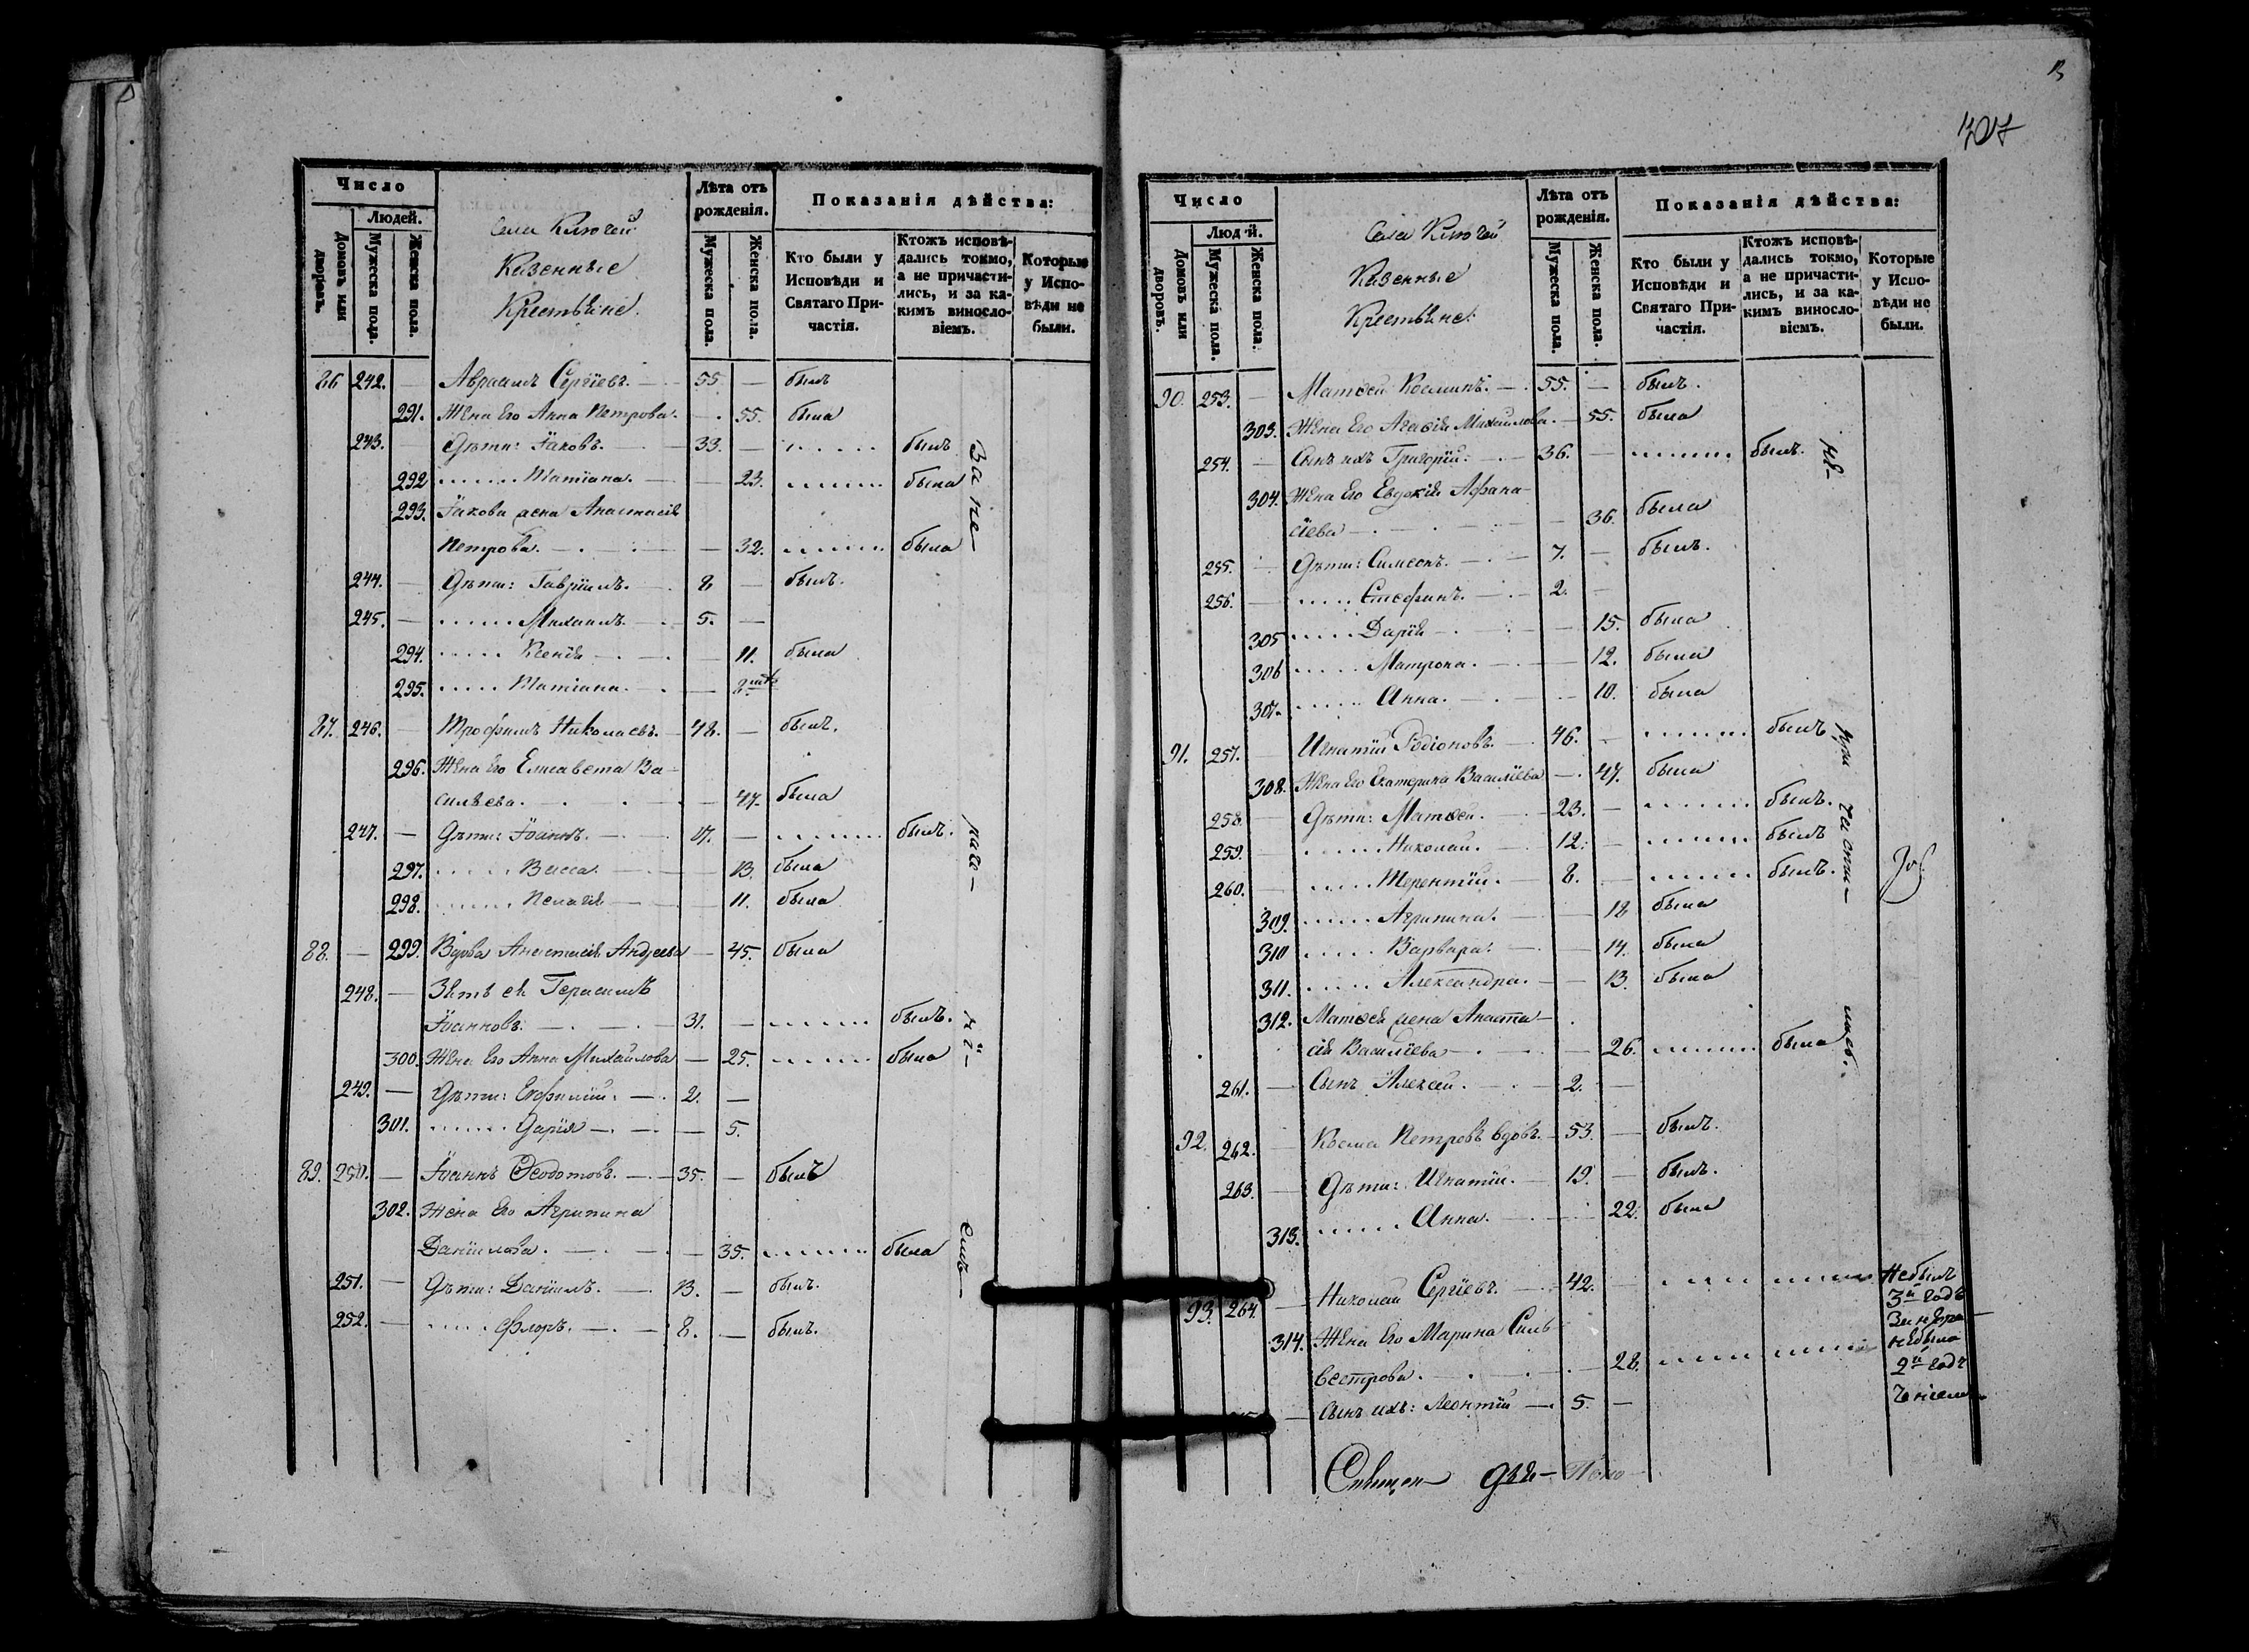 Число
Людей.
Домовъ или дворовъ.
Мужеска пола.
Женска пола.
Села Ключей
Казенные
Крестьяне.
Лѣта отъ рожденія.
Мужеска пола.
Женска пола.
Показанія дѣйства:
Кто были у Исповѣди и Святаго Причастія.
Ктожъ исповѣдались токмо, а не причастились, и за какимъ винословіемъ.
Которые у Исповѣди не были.
86 242. — Авраамъ Сергіевъ. — 55. — былъ
291. Жена Его Анна Петрова. — 55. была
243. — Дѣти: Іаковъ. — 33. — былъ
292 Татіана. — 23. была
293. Іакова жена Анастасія
Петрова. — 32. была
244. — Дѣти: Гавріилъ. — 8 — былъ.
245. — Михаилъ. — 5. —
294. Ксенія — 11. была
295. Татіана. —
87. 246. — Трофимъ Николаевъ. — 48. — былъ.
296. Жена Его Елисавета Ва-
сильева. — 47. была
247. — Дѣти: Іоаннъ. — 17. — былъ.
297. Васса. — 13. была
298. Пелагія — 11. была
88. — 299. Вдова Анастасія Андреева — 45. была
248. — Зять ея Герасимъ
Іоанновъ. — 31. — былъ.
300. Жена Его Анна Михайлова — 25. была
249. — Дѣти: Евфимій. — 2. —
301. Дарія — 5.
89. 250. — Іоаннъ Ѳеодотовъ. — 35. — былъ
302. Жена Его Агрипина
Даніилова. — 35. была
251. — Дѣти: Даніилъ. — 13. — былъ.
252. — Флоръ. — 8. — былъ.
За не-
ніе-
307
Число
Людей.
Домовъ или дворовъ.
Мужеска пола.
Женска пола.
Села Ключей
Казенные
Крестьяне.
Лѣта отъ рожденія.
Мужеска пола.
Женска пола.
Показанія дѣйства:
Кто были у Исповѣди и Святаго Причастія.
Ктожъ исповѣдались токмо, а не причастились, и за какимъ винословіемъ.
Которые у Исповѣди не были.
90. 253. — Матѳей Косминъ. — 55. — былъ.
303. Жена Его Агафія Михайлова — 55. была
254. — Сынъ ихъ Григорій. — 36. — былъ.
304. Жена Его Евдокія Афана-
сіева — 36. была
255. — Дѣти: Симеонъ. — 7. — былъ.
256. — Стефанъ. — 2. —
305 Дарія — 15. была
306 Матрона. — 12. была
307. Анна. — 10. была
91. 257. — Игнатій Родіоновъ. — 46. — былъ
308. Жена Его Екатерина Василіева — 47. была
258. — Дѣти: Матѳей. — 23. — былъ.
259. — Николай. — 12. — былъ
260. — Терентій. — 8. — былъ.
309. Агрипина. — 18 была
310 Варвара. — 14. была
311. Александра. — 13. была
312. Матѳея жена Анаста-
сія Василіева — 26. была
261. — Сынъ Алексей. — 2. —
92. 262. — Косма Петровъ вдовъ. — 53. — былъ.
263. — Дѣти: Игнатій. — 19. — былъ.
313. Анна. — 22. была
93. 264. — Николай Сергіевъ. — 42. — Небылъ
3й годъ
314. Жена Его Марина Силь-
вестрова. — 28. небыла
2й годъ
— Сынъ ихъ: Леонтій — 5. —
при
части-
Священ